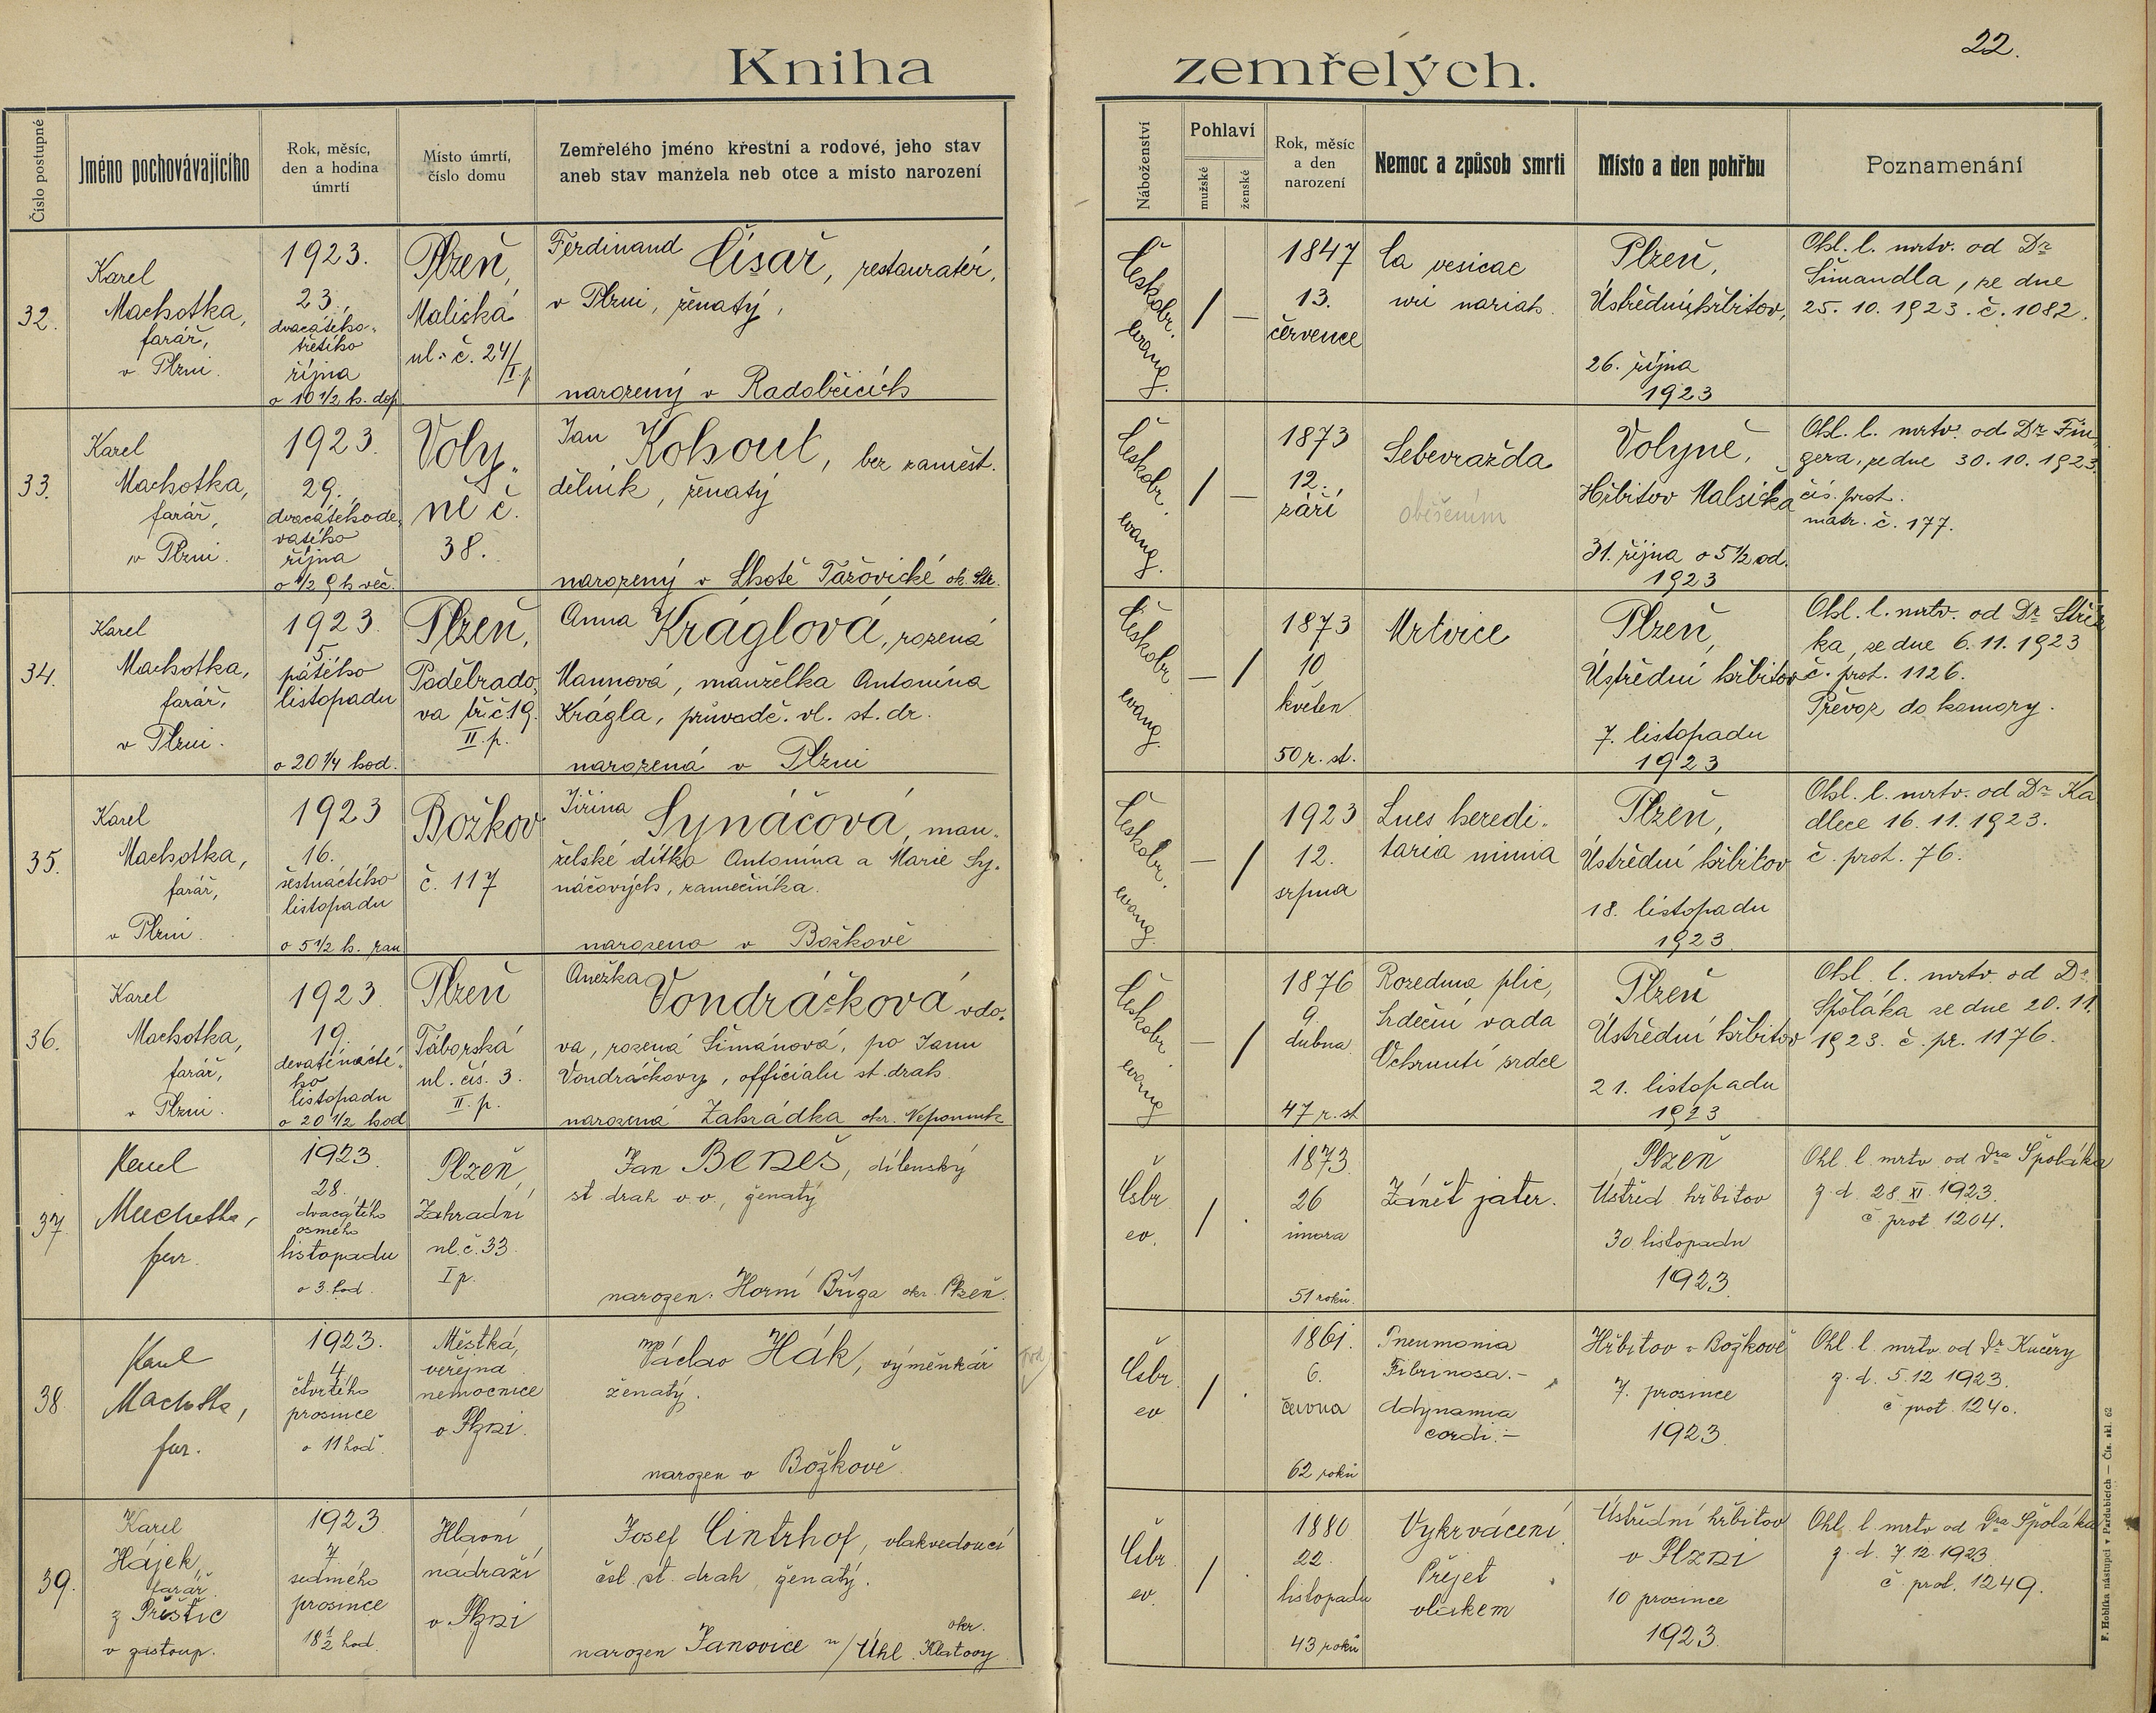 22.
Kniha zemřelých.
Číslo postupné
Jméno pochovávajícího
Rok, měsíc,
den a hodina
úmrtí
Místo úmrtí,
číslo domu
Zemřelého jméno křestní a rodové, jeho stav
aneb stav manžela neb otce a místo narození
Náboženství
Pohlaví
mužské
ženské
Rok, měsíc
a den
narození
Nemoc a způsob smrti
Místo a den pohřbu
Poznamenání
32.
Karel
Machotka,
farář,
v Plzni.
1923.
23.,
dvacátého-
třetího
října
o 10 1/2 h. dop.
Plzeň,
Malická
ul. č. 24/
I. p.
Ferdinand Císař, restauratér,
v Plzni, ženatý,
narozený v Radobčicích
Českobr.
evang.
/
—
1847
13.
července
Ca vesicae
Plzeň,
Ústřední hřbitov,
26. října
1923
Ohl. l. mrtv. od Dr
Šimandla, ze dne
25. 10. 1923. č. 1082.
33.
Karel
Machotka,
farář,
v Plzni.
1923.
29.,
dvacátéhode-
vatého
října
o 1/2 9 h več.
Voly-
ně č.
38.
Jan Kohout, bez zaměst.
dělník, ženatý
narozený v Lhotě Tažovické ok. Str.
Českobr.
evang.
/
—
1873
12.
září
Sebevražda
oběšením
Volyně,
Hřbitov Malsička
31. října o 5 1/2 od.
1923
Ohl. l. mrtv. od Dr Fin-
gera, ze dne 30. 10. 1923.
čís. prot.
matr. č. 177.
34.
Karel
Machotka,
farář,
v Plzni.
1923.
5.
pátého
listopadu
o 20 1/4 hod.
Plzeň,
Poděbrado-
va tř. č. 19.
II. p.
Anna Kráglová, rozená
Mannová, manželka Antonína
Krágla, průvodč. vl. st. dr.
narozená v Plzni
Českobr.
evang.
—
/
1873
10
květen
50 r. st.
Mrtvice
Plzeň,
Ústřední hřbitov
7. listopadu
1923
Ohl. l. mrtv. od Dr
ka, ze dne 6. 11. 1923
č. prot. 1126.
Převoz do komory.
35.
Karel
Machotka,
farář,
v Plzni.
1923
16.
šestnáctého
listopadu
o 5 1/2 h. ran
Božkov
č. 117
Jiřina Synáčová, man-
želské dítko Antonína a Marie Sy-
náčových, zámečníka.
narozena v Božkově
Českobr.
evang.
—
/
1923
12.
srpna
Lues heredi-
taria nimia
Plzeň,
Ústřední hřbitov
18. listopadu
1923.
Ohl. l. mrtv. od Dr Ka
dlece 16. 11. 1923.
č. prot. 76.
36.
Karel
Machotka,
farář,
v Plzni.
1923.
19.
devatenácté-
ho
listopadu
o 20 1/2 hod
Plzeň
Táborská
ul. čís. 3.
II. p.
Anežka Vondráčková vdo-
va, rozená Šimánová, po Janu
Vondráčkovy, officialu st. drah
narozená Zahrádka okr. Nepomuk
Českobr.
evang
—
/
1876
9.
dubna
47 r. st
Rozedma plic,
Srdeční vada
Ochrnutí srdce
Plzeň
Ústřední hřbitov
21. listopadu
1923
Ohl. l. mrtv. od Dr
Špoláka ze dne 20. 11.
1923. č. pr. 1176.
37.
Karel
Machotka,
far.
1923.
28.
dvacátého
osmého
listopadu
o 3. hod.
Plzeň,
Zahradní
ul. č. 33.
I p.
Jan Beneš, dílenský
st drah v. v., ženatý
narozen. Horní Bříza okr. Plzeň.
Čsbr.
ev.
/
.
1873.
26
února
51 roků.
Zánět jater.
Plzeň
Ústřed. hřbitov
30. listopadu
1923.
Ohl. l mrtv od Dra Špoláka
z. d. 28. XI. 1923.
č. prot. 1204.
38.
Karel
Machotka,
far.
1923.
4.
čtvrtého
prosince
o 11 hod.
Městká,
veřejná
nemocnice
v Plzni.
Václav Hák, výměnkář
ženatý.
narozen v Božkově.
Čsbr.
ev
/
.
1861.
6.
června
62 roků
Pneumonia
Fibrinosa.-
Adynamia
cordi.-
Hřbitov v Božkově
7. prosince
1923.
Ohl. l. mrtv od Dr Kučery
z. d. 5. 12 1923.
č prot. 1240.
39.
Karel
Hájek,
farář.
z Přeštic
v zastoup.
1923.
7.
sedmého
prosince
18 1/2 hod.
Hlavní
nádraží
v Plzni
Josef Cintrhof, vlakvedoucí
čsl. st. drah, ženatý.
narozen Janovice n/Úhl. okr. Klatovy
Čsbr.
ev.
/
.
1880
22.
listopadu
43 roků
Vykrvácení
Přejet
vlakem
Ústřední hřbitov
v Plzni
10 prosince
1923.
Ohl. l mrtv od Dra Špoláka
z. d. 7. 12. 1923.
č. prot. 1249.
F. Hoblíka nástupci v Pardubicích — Čís. skl. 62